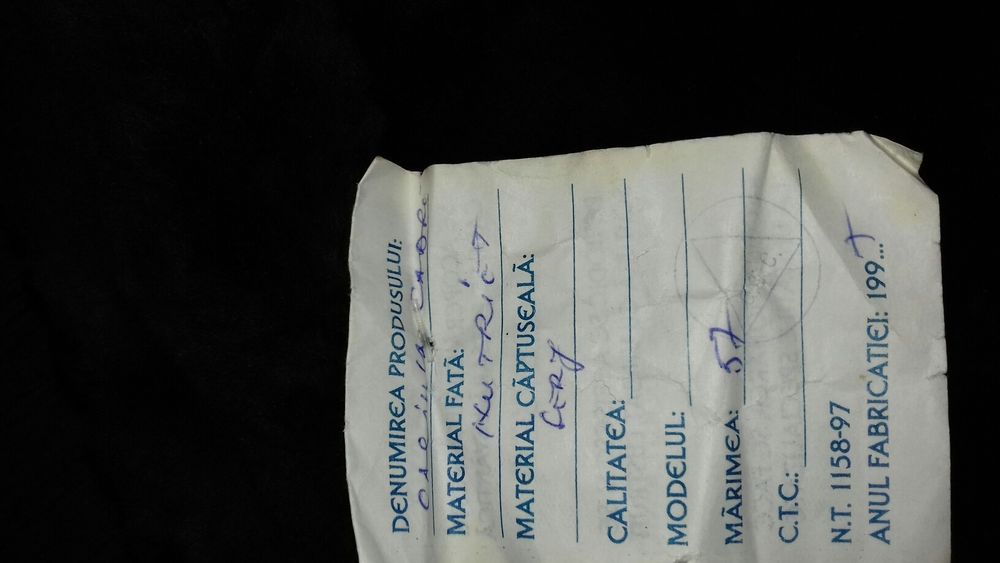 DENUMIREA PRODUSULUI:
MATERIAL FAȚĂ:
NUTRIET
MATERIAL CĂPTUȘEALĂ:
CALITATEA:
MODELUL:
MĂRIMEA: 57
C.T.C.:
N.T. 1158-97
ANUL FABRICAȚIEI: 199...7